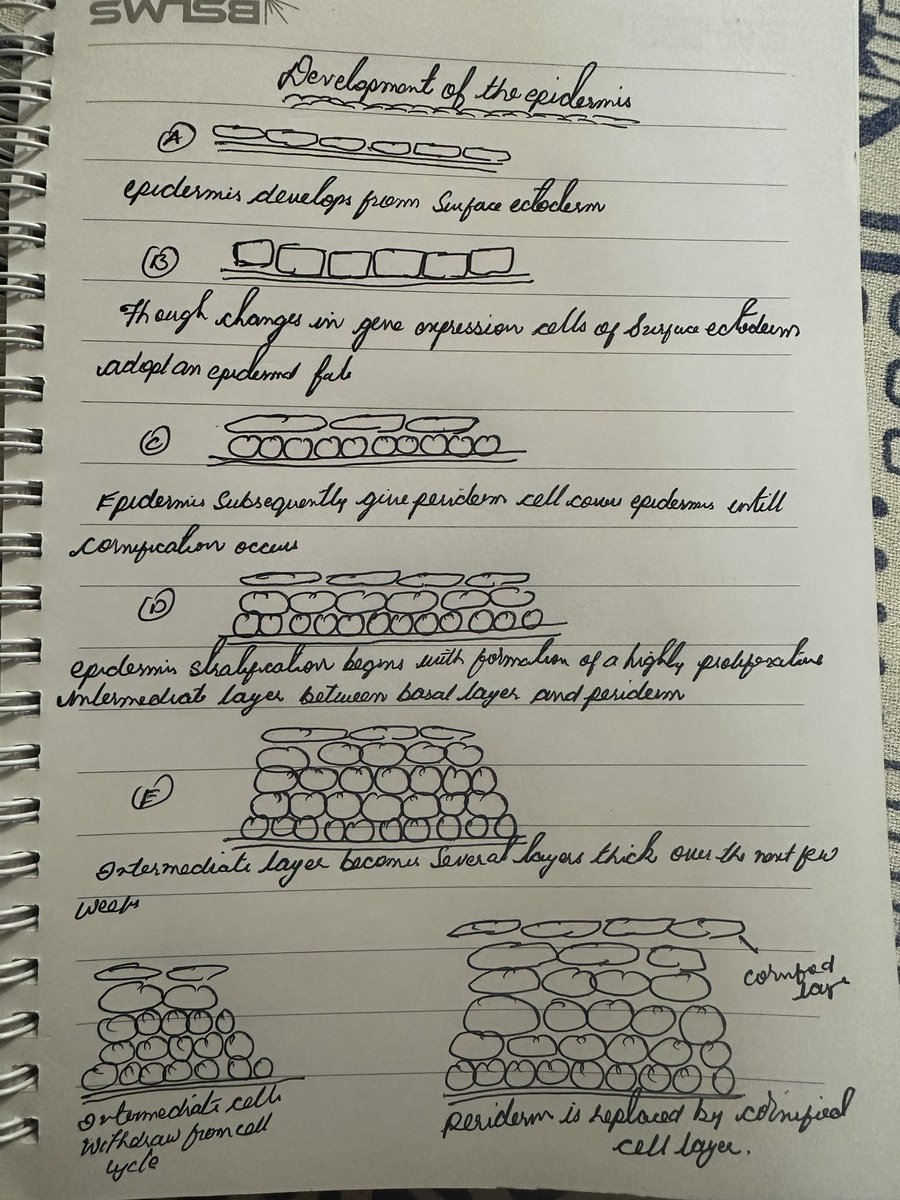 BSLMS
Development of the epidermis
A
epidermis develops from Surface ectoderm
B
Though changes in gene expression cells of Surface ectoderm
adopt an epidermal fate
C
Epidermis Subsequently give periderm cell cover epidermis untill
cornification occurs
D
epidermis stratification begins with formation of a highly proliferative
intermediate layer between basal layer and periderm
E
Intermediate layer becomes Several layers thick over the next few
weeks
cornified
layer
Intermediate cells
withdraw from cell
cycle
periderm is replaced by cornified
cell layer.